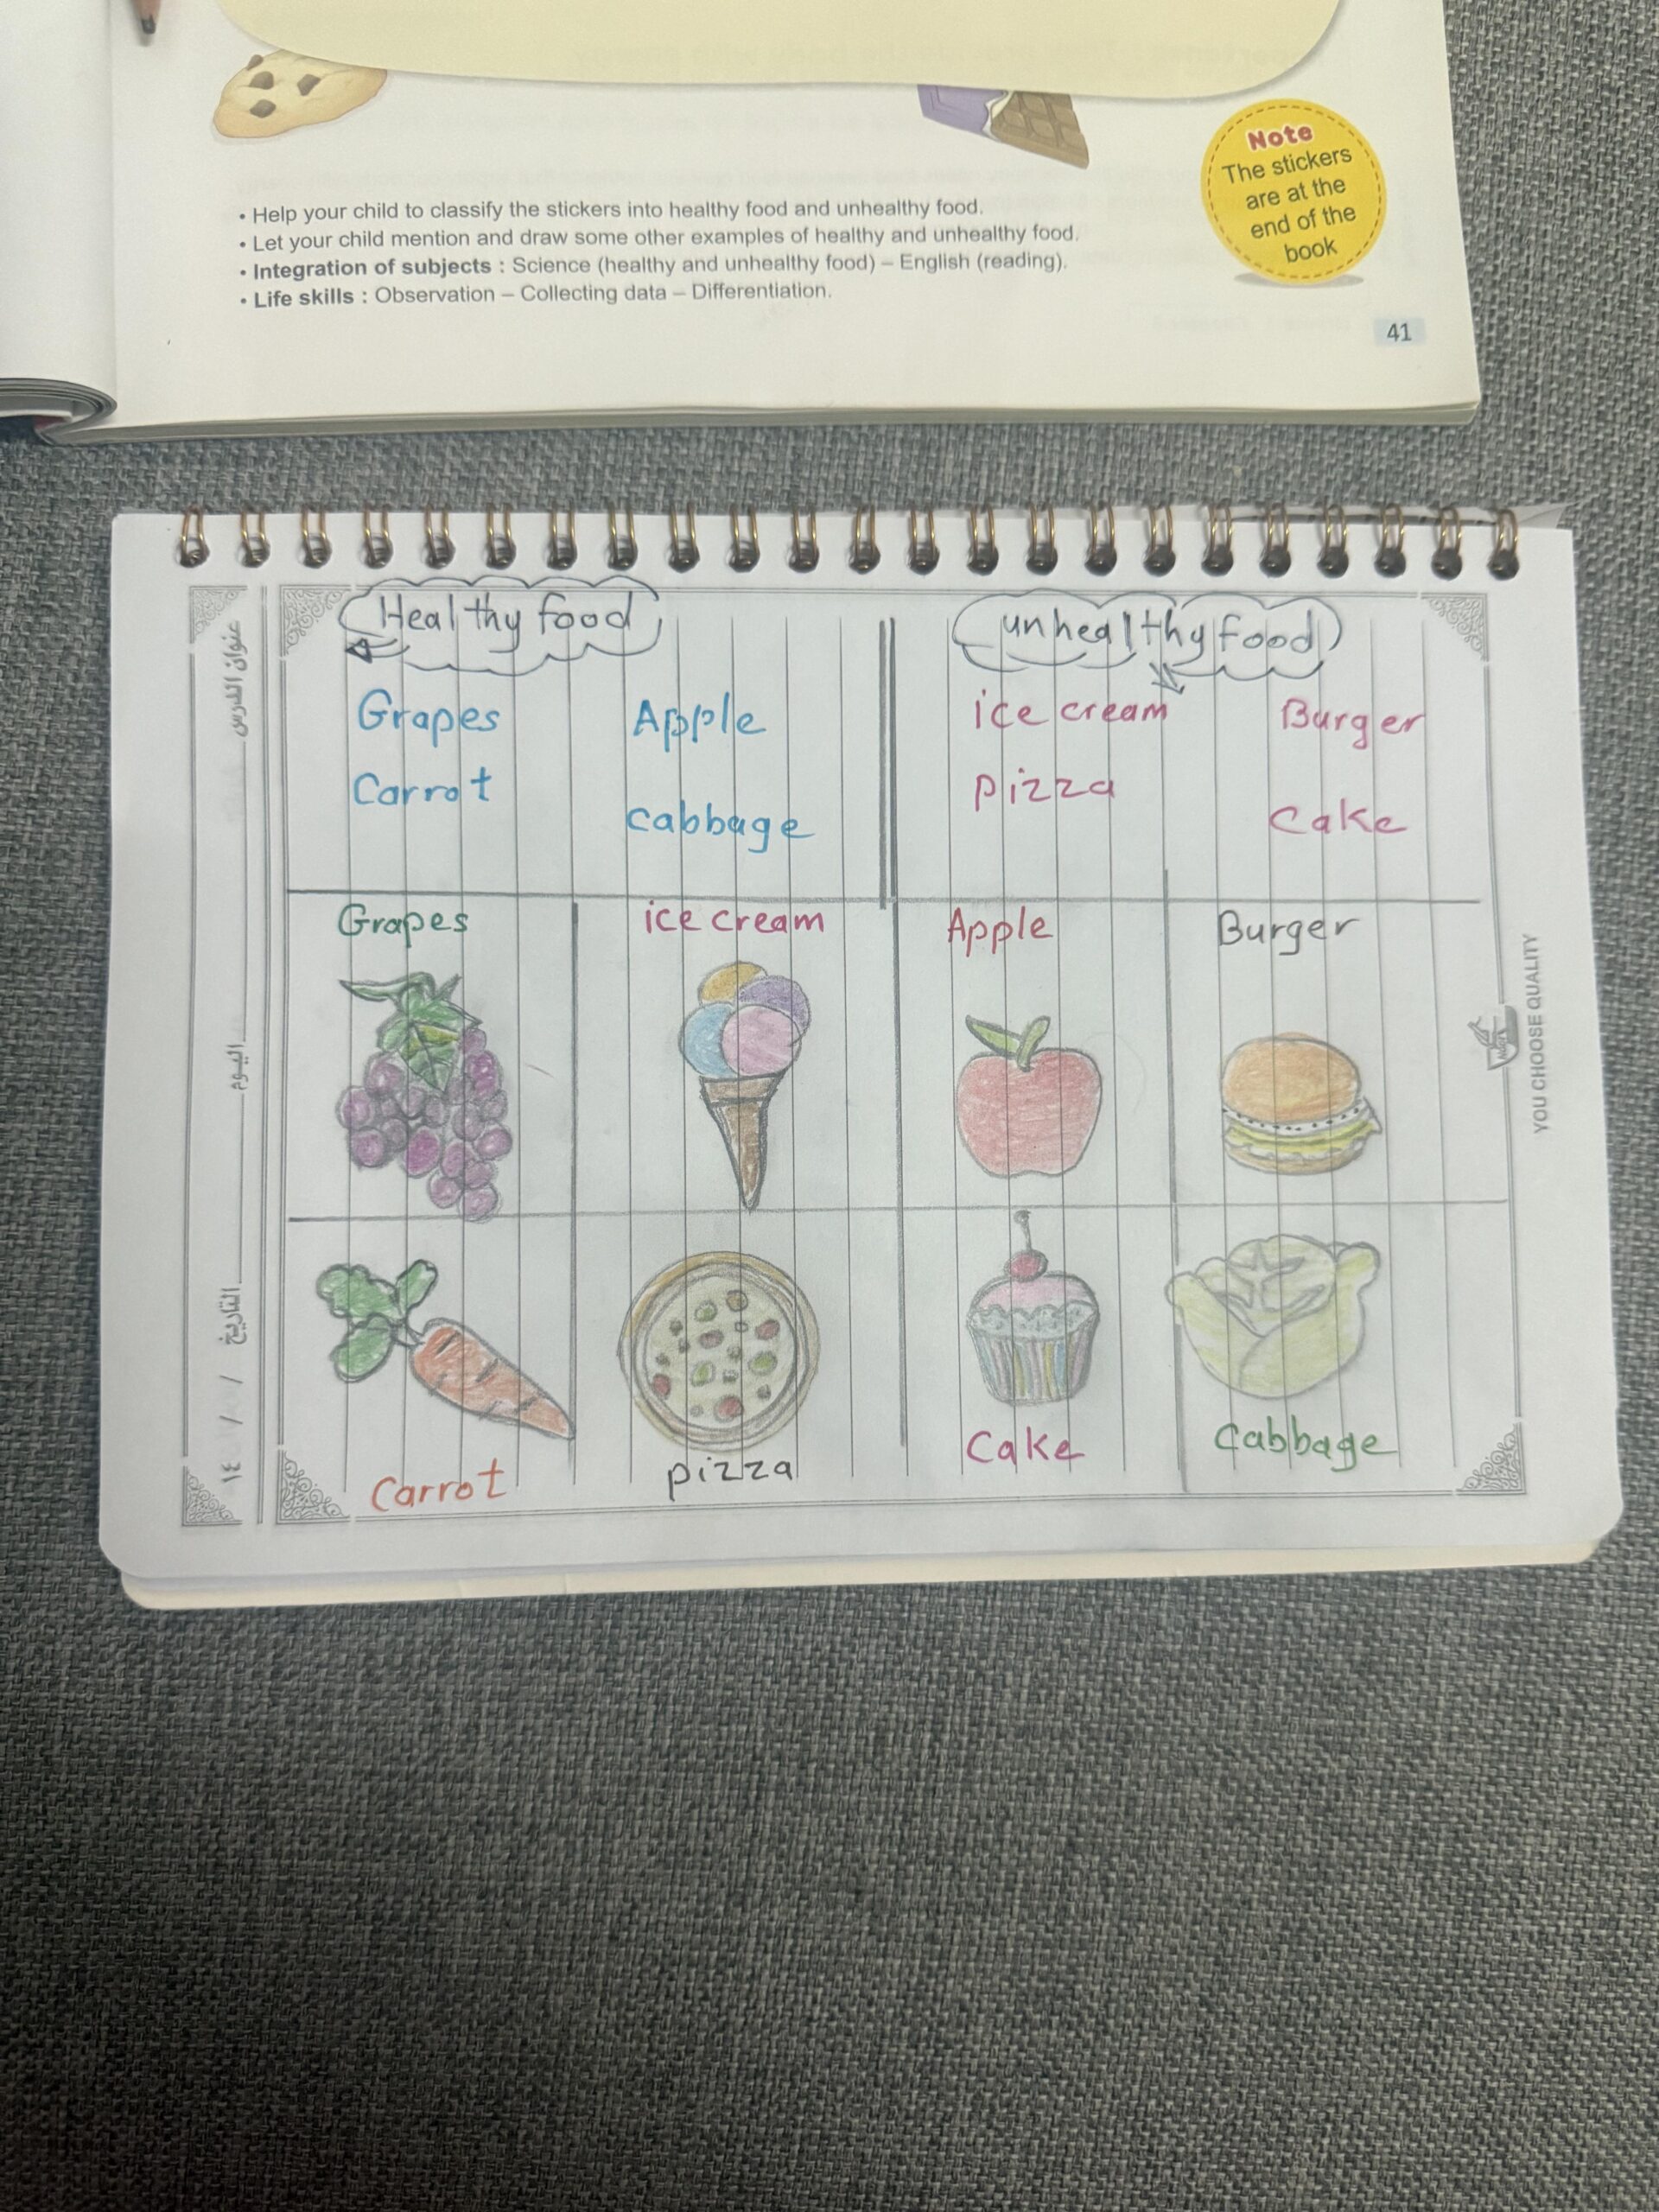 Note
The stickers
are at the
end of the
book
• Help your child to classify the stickers into healthy food and unhealthy food.
• Let your child mention and draw some other examples of healthy and unhealthy food.
• Integration of subjects : Science (healthy and unhealthy food) – English (reading).
• Life skills : Observation – Collecting data – Differentiation.
41
Healthy food
unhealthy food
Grapes Apple
Carrot
cabbage
ice cream Burger
pizza
Cake
Grapes
ice cream
Apple
Burger
Carrot
pizza
Cake
Cabbage
عنوان الدرس
اليوم
التاريخ / / ١٤
YOU CHOOSE QUALITY